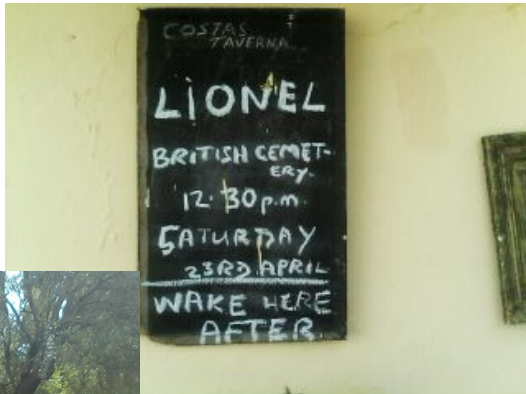 COSTAS
TAVERNA
LIONEL
BRITISH CEMET-
ERY.
12.30p.m.
SATURDAY
23RD APRIL
WAKE HERE
AFTER.